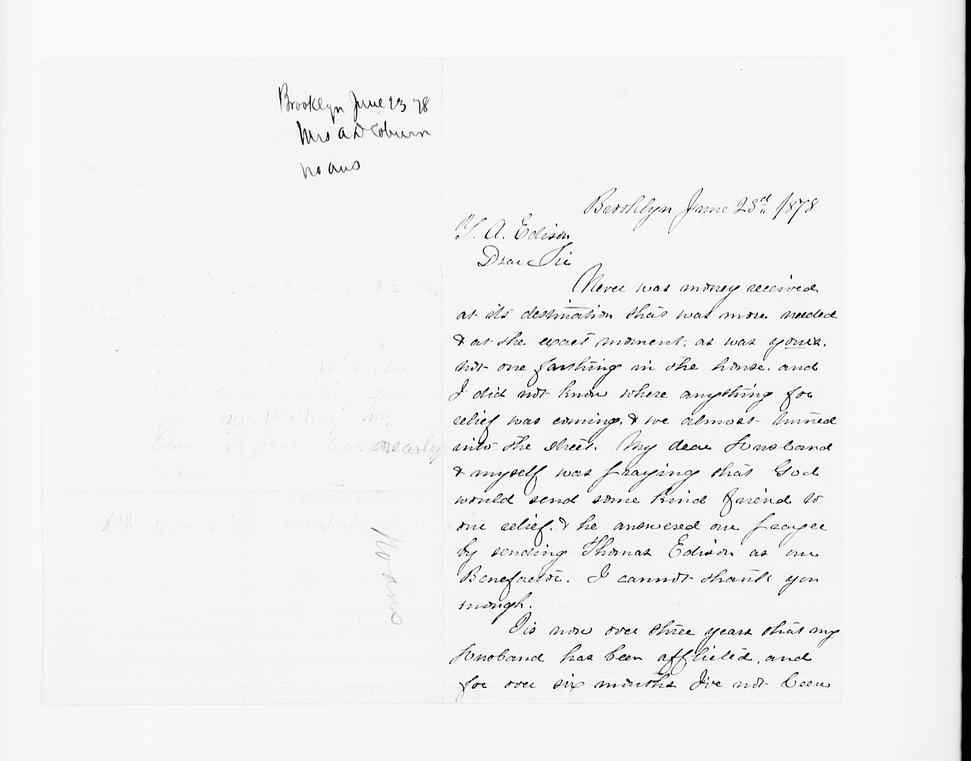 Brooklyn June 23 78
Mrs A D Coburn
No ans
No ans
Brooklyn June 23rd 1878
T. A. Edison
Dear Sir
Never was money received
at its destination that was more needed
& at the exact moment, as was yours.
not one farthing in the house. and
I did not know where anything for
relief was coming, & we almost turned
into the street. My dear Husband
& myself was praying that God
would send some kind friend to
our relief. & he answered our prayer
by sending Thomas Edison as our
Benefactor. I cannot thank you
enough.
Tis now over three years that my
Husband has been afflicted, and
for over six months I've not been
nearly